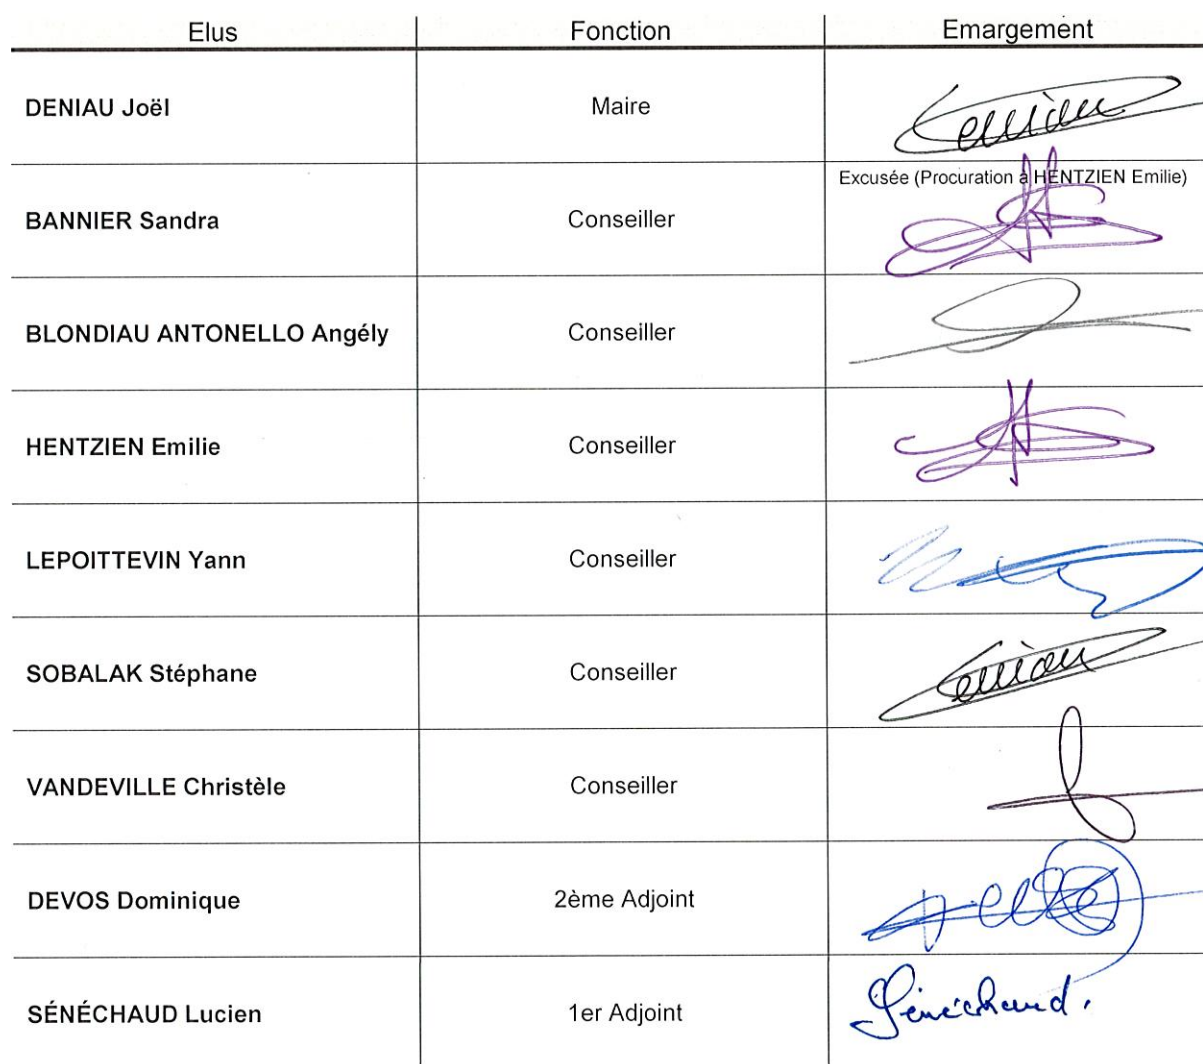 Elus Fonction Emargement
DENIAU Joël Maire
Excusée (Procuration à HENTZIEN Emilie)
BANNIER Sandra Conseiller
BLONDIAU ANTONELLO Angély Conseiller
HENTZIEN Emilie Conseiller
LEPOITTEVIN Yann Conseiller
SOBALAK Stéphane Conseiller
VANDEVILLE Christèle Conseiller
DEVOS Dominique 2ème Adjoint
SÉNÉCHAUD Lucien 1er Adjoint Sénéchaud.